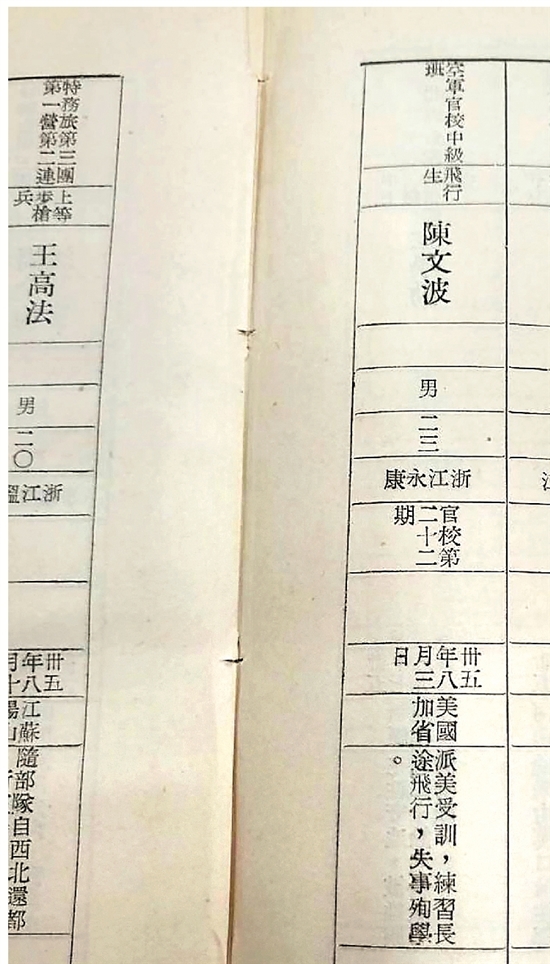 空軍官校中級
班
飛行
生
陳文波
男
二三
浙江永康
官校第
二十二
期
卅五
年八
月三
日
美國
加省
派美受訓，練習長
途飛行，失事殉學
。
特務旅第三團
第一營第二連
上等
步槍
兵
王高法
男
二〇
浙江溫
卅五
年八
月十
江蘇
湯山
隨部隊自西北還都